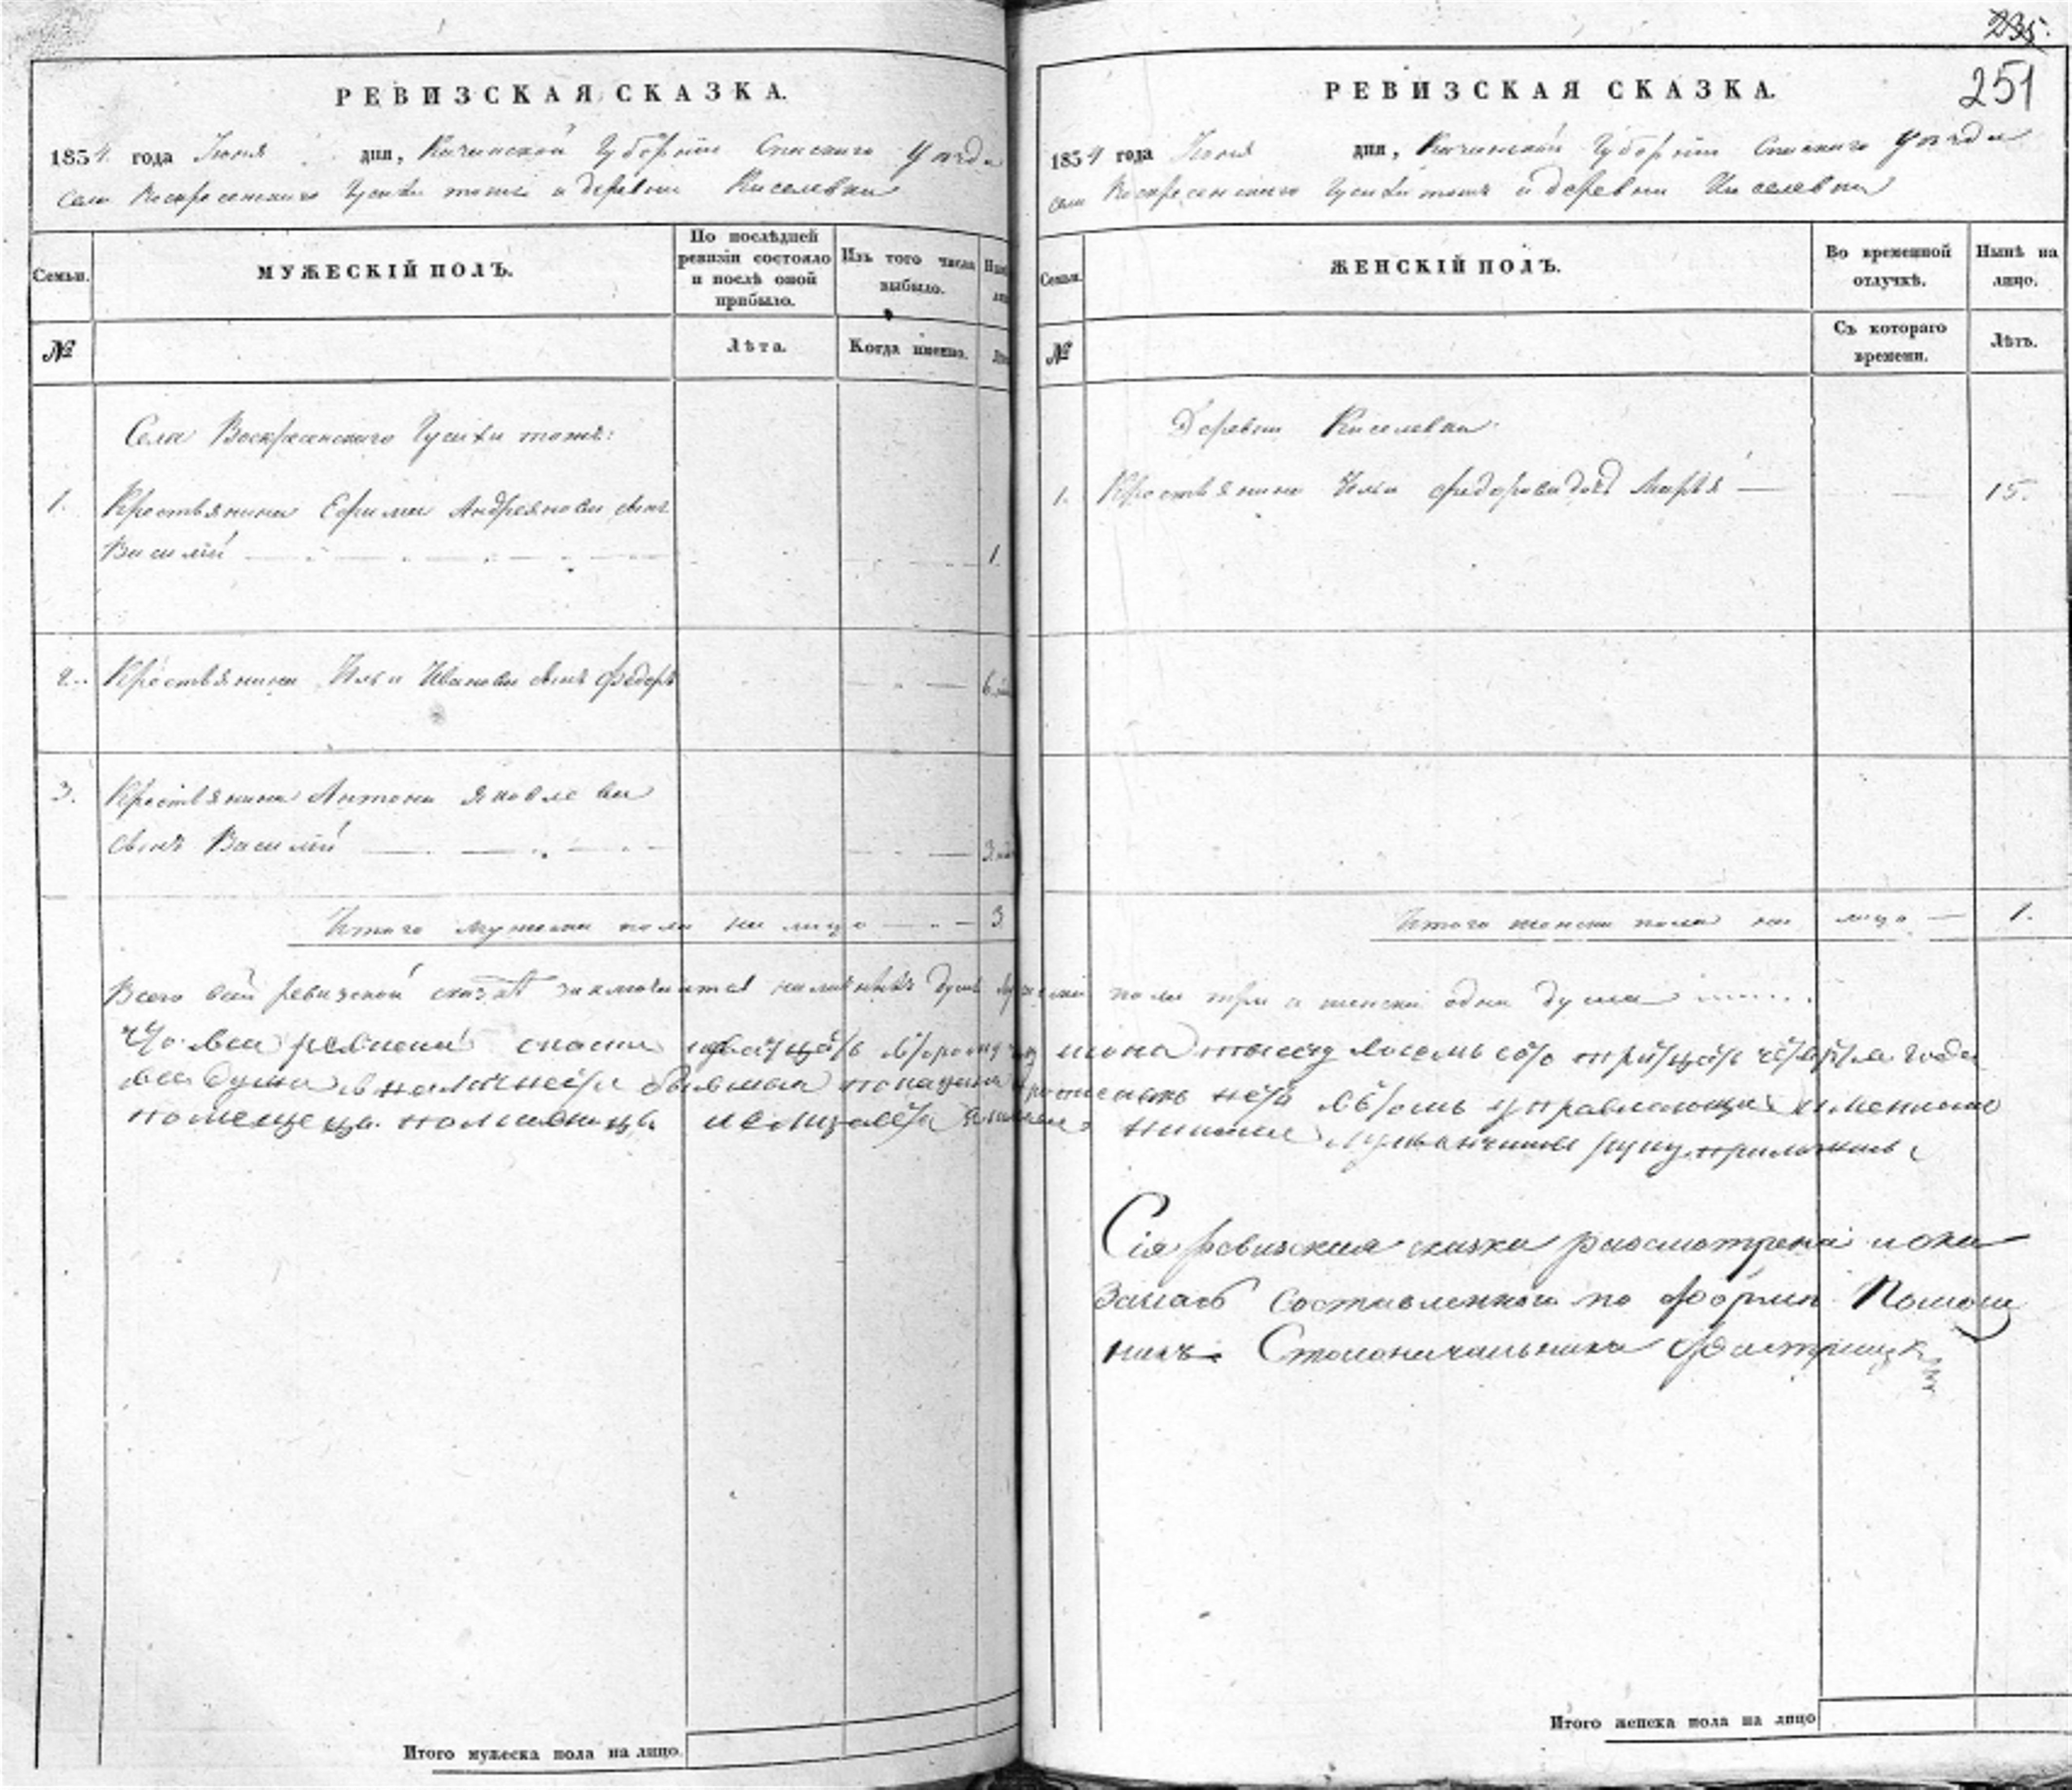 РЕВИЗСКАЯ СКАЗКА.
1854 года Іюня дня, Казанской Губерніи Спаскаго Уезда
села Воскресенскаго Гусиха тожъ и деревни Киселевки
Семьи.
МУЖЕСКІЙ ПОЛЪ.
По послѣдней ревизіи состояло и послѣ оной прибыло.
Изъ того числа выбыло.
№
Лѣта.
Когда именно.
Села Воскресенскаго Гусихи тожъ:
1. Крестьянина Ефима Андреянова сынъ
Василій 1.
2. Крестьянина Ильи Иванова сынъ Федоръ 6
3. Крестьянина Антона Яковлева
сынъ Василій 3
Итого мужска пола на лицо 3
Итого мужеска пола на лицо.
235.
251
РЕВИЗСКАЯ СКАЗКА.
1854 года Іюня дня, Казанской Губерніи Спаскаго Уезда
села Воскресенскаго Гусихи тожъ и деревни Киселевки
Семьи.
ЖЕНСКІЙ ПОЛЪ.
Во временной отлучкѣ.
Нынѣ на лицо.
№
Съ котораго времени.
Лѣтъ.
Деревни Киселевки
1. Крестьянина Ильи Федорова дочь Марья 15.
Итого женска пола на лицо 1.
Всего въ сей ревизской сказкѣ заключается наличныхъ душъ мужеска пола три и женска одна душа
ревиской двацать июня восемь сто четыре года
все души в наличности управляющій имением
помещеца руку приложилъ
Сія Ревизская сказка разсмотрена и ока
залась составленною по форме Помощ
никъ Столоначальника
Итого женска пола на лицо